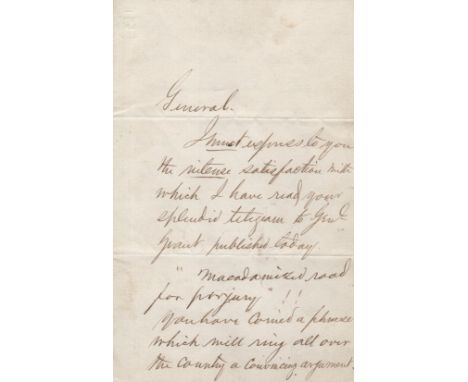 General.
I must express to you
the intense satisfaction with
which I have read your
splendid telegram to Genl
Grant published today.
"Macadamized road
for perjury" !!
You have coined a phrase
which will ring all over
the country a convincing argument.